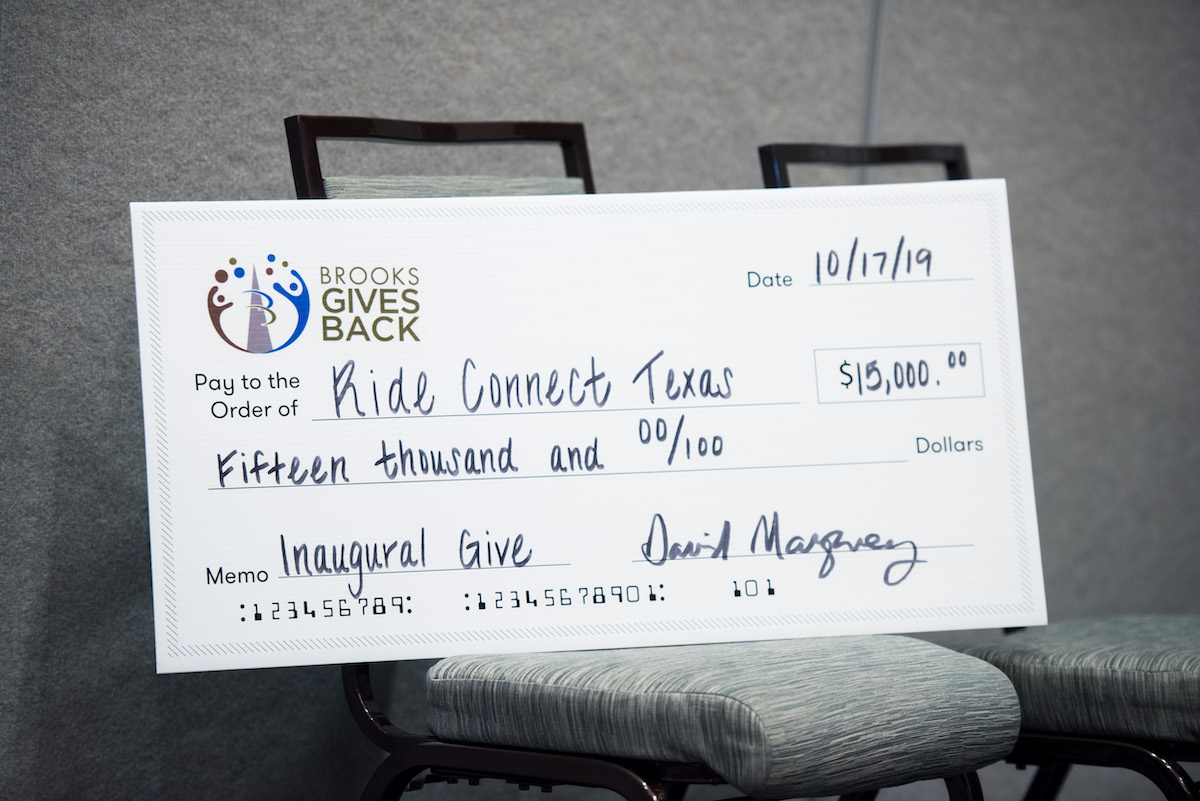 BROOKS
GIVES
BACK
Date 10/17/19
Pay to the
Order of Ride Connect Texas $15,000.00
Fifteen thousand and 00/100 Dollars
Memo Inaugural Give David
⑆123456789⑆ ⑆12345678901⑆ 101